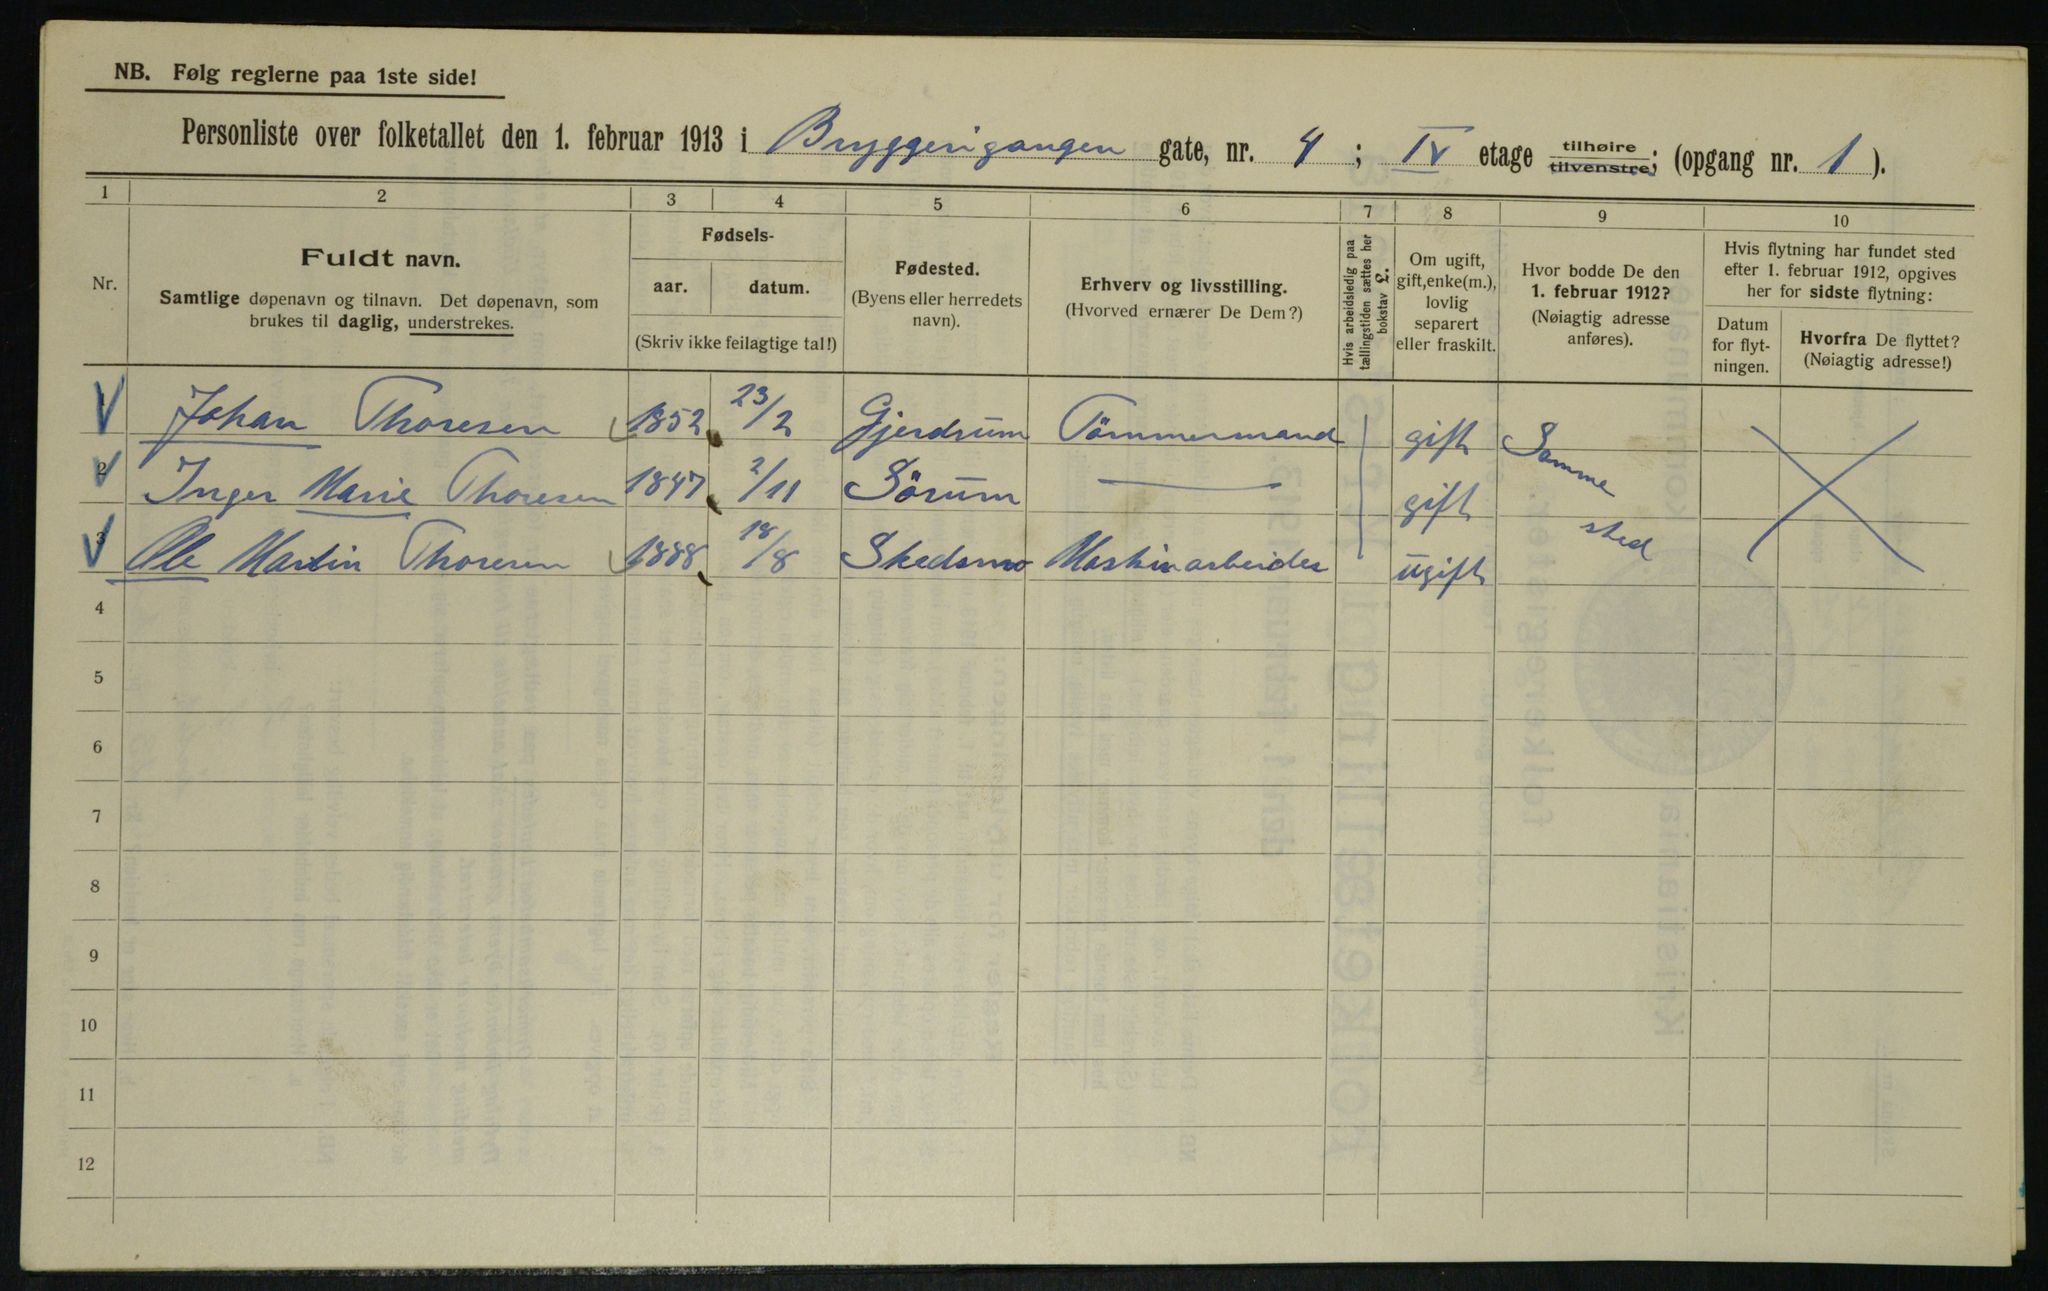 NB. Følg reglerne paa 1ste side!
Personliste over folketallet den 1. februar 1913 i Bryggerigangen gate, nr. 4 ; IV etage tilhøire tilvenstre; (opgang nr. 1 ).
1 2 3 4 5 6 7 8 9 10
Nr.
Fuldt navn.
Samtlige døpenavn og tilnavn. Det døpenavn, som
brukes til daglig, understrekes.
Fødsels-
aar. datum.
(Skriv ikke feilagtige tal!)
Fødested.
(Byens eller herredets
navn).
Erhverv og livsstilling.
(Hvorved ernærer De Dem?)
Hvis arbeidsledig paa
tællingstiden sættes her
bokstav £.
Om ugift,
gift, enke(m.),
lovlig
separert
eller fraskilt.
Hvor bodde De den
1. februar 1912?
(Nøiagtig adresse
anføres).
Hvis flytning har fundet sted
efter 1. februar 1912, opgives
her for sidste flytning:
Datum
for flyt-
ningen.
Hvorfra De flyttet?
(Nøiagtig adresse!)
1 Johan Thoresen 1852 23/2 Gjerdrum Tömmermand gift Samme
2 Inger Marie Thoresen 1847 2/11 Sörum — gift sted
3 Ole Martin Thoresen 1888 18/8 Skedsmo Maskinarbeider ugift
4
5
6
7
8
9
10
11
12